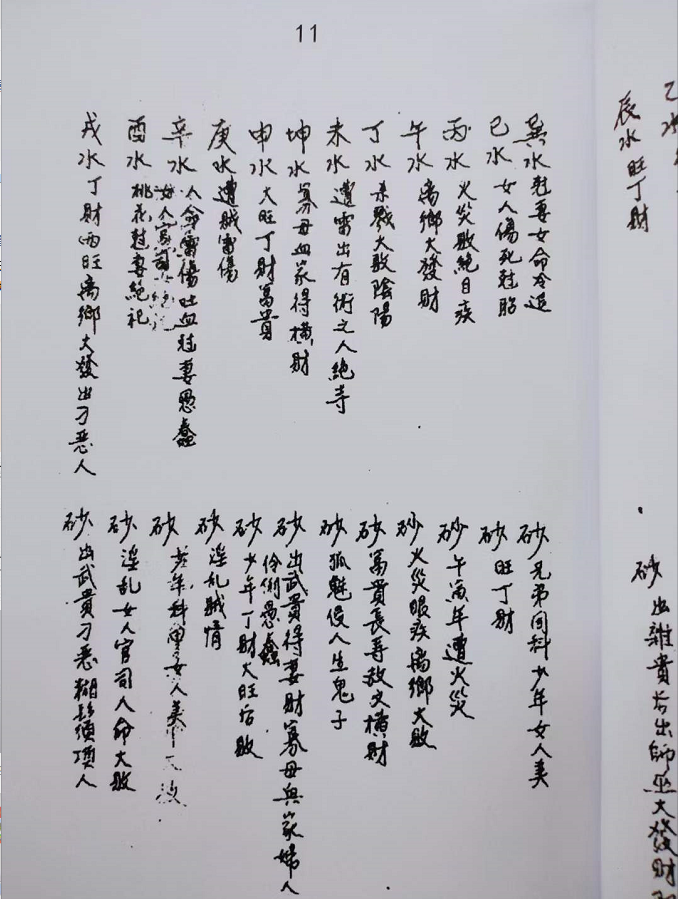 11
巽水 尅妻女命冷退
巳水 女人傷死尅胎
丙水 火災敗絕目疾
午水 离鄉大發財
丁水 杀戮大敗陰陽
未水 遭雷出有術之人絕寺
坤水 寡母血家得橫財
申水 大旺丁財萬貴
庚水 遭賊雷傷
辛水 人命雷傷吐血尅妻愚蠢
女人官
酉水 桃花尅妻絕祀
戌水 丁財两旺离鄉大發出刁惡人
砂 兄弟同科少年女人美
砂 旺丁財
砂 午寅年遭火災
砂 火災眼疾离鄉大敗
砂 萬貴長寿救文橫財
砂 狐魅侵人生鬼子
砂 出武貴得妻財寡母與家婦人
伶俐愚蠢
砂 少年丁財大旺后敗
砂 淫乱賊情
砂 年科 女人美
砂 淫乱女人官司人命大敗
砂 出武貴刁惡糊鬍須項人
乙水
辰水 旺丁財
砂 出雜貴长出師巫大發財